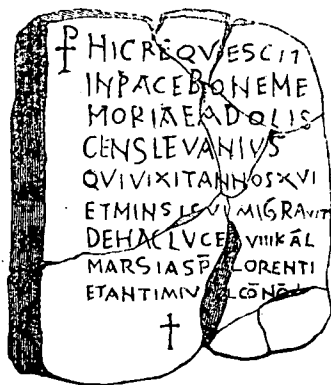 HICREQVESCIT
INPACEBONEME
MORIAEADOLIS
CENSLEVANIVS
QVIVIXITANNOSXVI
MIGRAVIT
DEHACLVCE VIIIKĀL
MARSIASP̄ LORENTI
ETANTIMIV